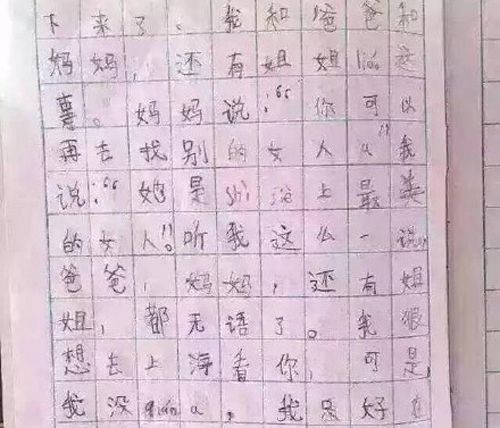 下来了。我和爸爸和
妈妈，还有姐姐liáo这
事。妈妈说：“你可以
再去找别的女人a”我
说：“她是shì 上最美
的女人”！听我这么一说，
爸爸，妈妈，还有姐
姐，都无语了。我狠
想去上海看你，可是，
我没qián a，我只好